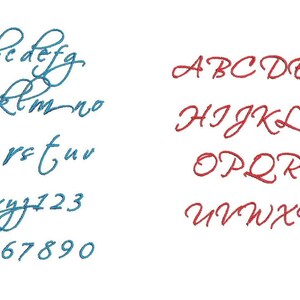 bcdefg
klmno
rstuv
xyz123
67890
ABCDE
HIJKL
OPQR
UVWX